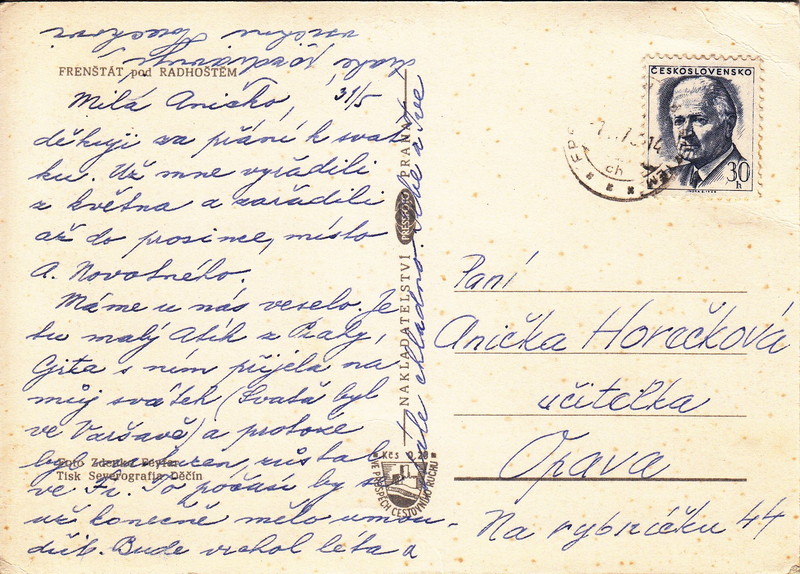 FRENŠTÁT pod RADHOŠTĚM
Milá Aničko, 31/5
děkuji za přání k svát
ku. Už mne vyřádili
z května a zařadili
až do prosince, místo
A. Novotného.
Máme u nás veselo. Je
tu malý Alík z Prahy,
Gita s ním přijela na
můj svátek (Svaťa byl
ve Varšavě) a protože
byl zůstal
ve Fr. To počasí by se
už konečně mělo umou-
dřit. Bude vrchol léta a
stále chladno.
všechny
srdečně pozdravují
Foto Zdenko Feyfar
Tisk Severografia Děčín
NAKLADATELSTVÍ PRESSFOTO PRAHA
Kčs 0,20
VE PROSPĚCH CESTOVNÍHO RUCHU
ČESKOSLOVENSKO
30
h
Paní
Anička Horečková
učitelka
Opava
Na rybníčku 44